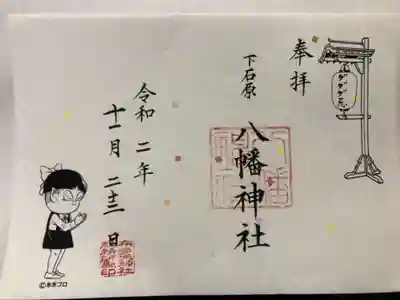 奉拝
下石原
八幡神社
令和二年
十一月二十三日
ゲゲゲ忌
©水木プロ